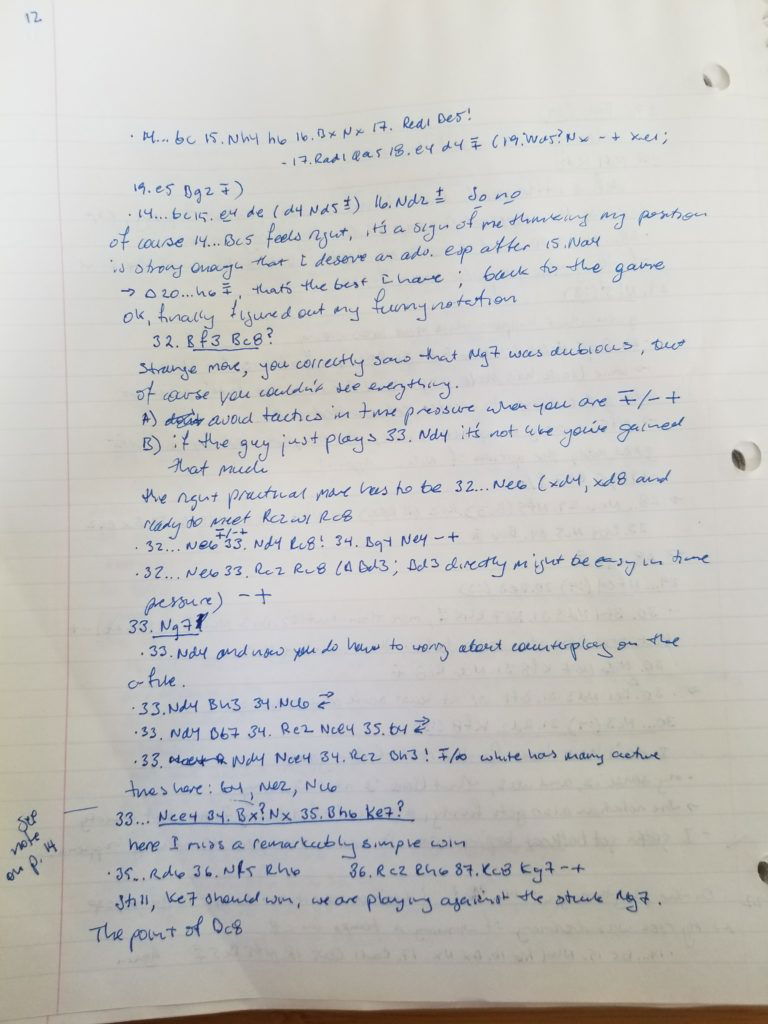 12
· 14... bc 15. Nh4 h6 16. Bx Nx 17. Red1 Be5!
- 17. Rad1 Qa5 18. e4 d4 ∓ (19. Nd5? Nx -+ xe1;
19. e5 Bg2 ∓)
· 14... bc 15. e4 de (d4 Nd5 ±) 16. Nd2 ± So no
of course 14... Bc5 feels right, it's a sign of me thinking my position
is strong enough that I deserve an adv. esp after 15. Na4
→ Δ 20... h6 ∓, that's the best I have; back to the game
ok, finally figured out my funny notation
32. Bf3 Bc8?
Strange move, you correctly saw that Ng7 was dubious, but
of course you couldn't see everything.
A) avoid tactics in time pressure when you are ∓/-+
B) if the guy just plays 33. Nd4 it's not like you've gained
that much
the right practical move has to be 32... Ne6 (xd4, xd8 and
ready to meet Rc2 w/ Rc8
· 32... Ne6 ∓/-+ 33. Nd4 Rc8! 34. Bg4 Ne4 -+
· 32... Ne6 33. Rc2 Rc8 (Δ Bd3; Bd3 directly might be easy in time
pressure) -+
33. Ng7
· 33. Nd4 and now you do have to worry about counterplay on the
c-file.
· 33. Nd4 Bh3 34. Nc6 ⇄
· 33. Nd4 Bb7 34. Rc2 Nce4 35. b4 ⇄
· 33. Nd4 Nce4 34. Rc2 Bh3! ∓/∞ white has many active
tries here: b4, Ne2, Nc6
See note on p. 14
33... Nce4 34. Bx? Nx 35. Bh6 Ke7?
here I miss a remarkably simple win
· 35... Rd6 36. Nf5 Rh6 36. Rc2 Rh6 37. Rc8 Kg7 -+
Still, Ke7 should win, we are playing against the stuck Ng7.
The point of Bc8